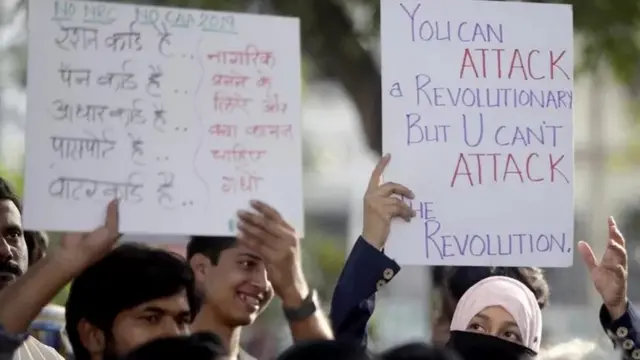 NO NRC NO CAA 2019
राशन कार्ड है...
पैन कार्ड है..
आधार कार्ड है..
पासपोर्ट है...
वाटर कार्ड है...
नागरिक
बनने के
लिए और
क्या कागज
चाहिए
गधो
YOU CAN
ATTACK
a REVOLUTIONARY
BUT U CAN'T
ATTACK
THE
REVOLUTION.